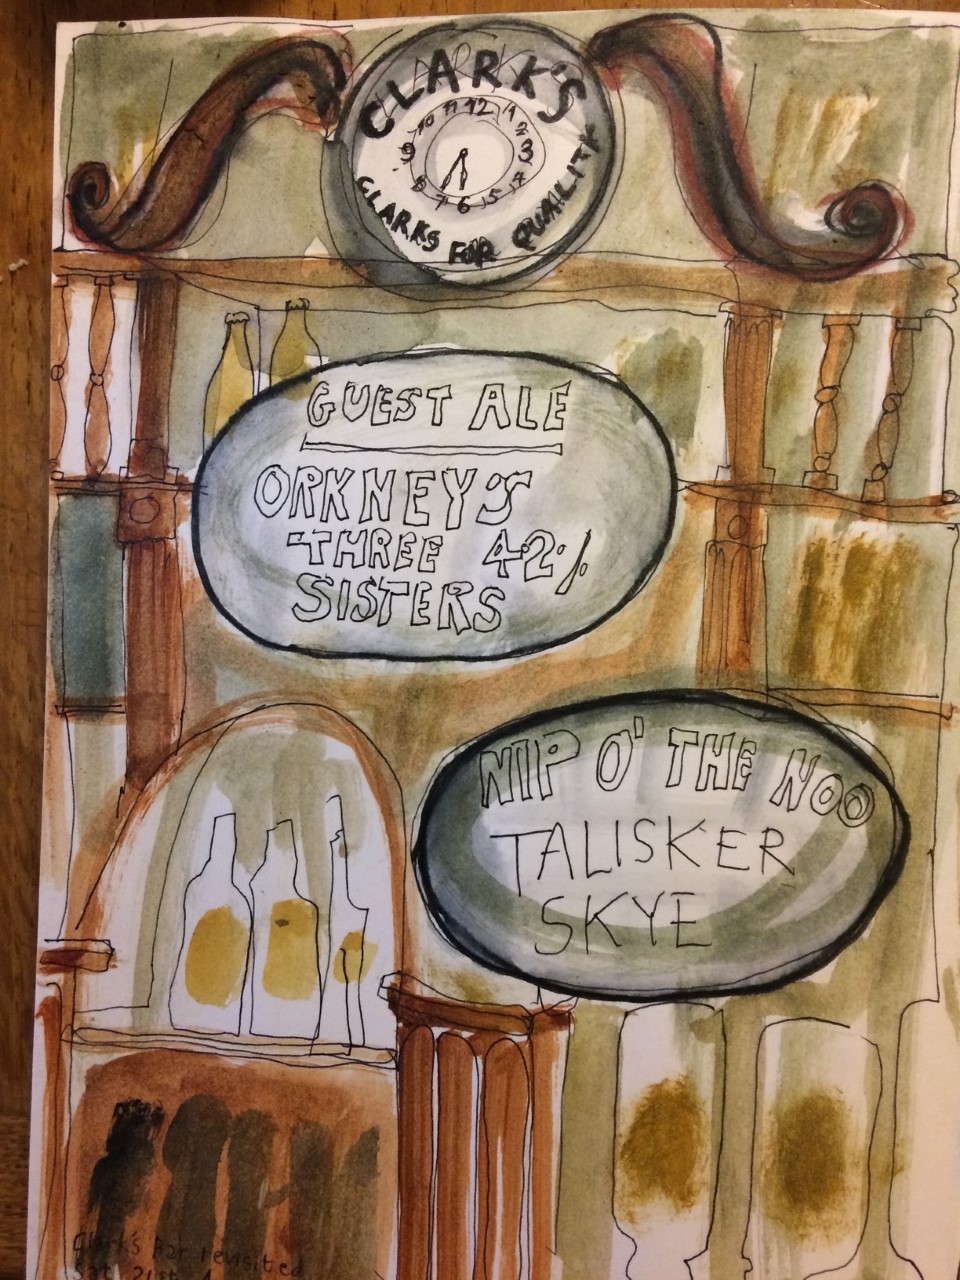 CLARK'S
11 12 1
10 2
9 3
8 4
7 6 5
CLARKS FOR QUALITY
GUEST ALE
ORKNEY'S
THREE 4·2%
SISTERS
NIP O' THE NOO
TALISKER
SKYE
Clark's Bar revisited
Sat 21st